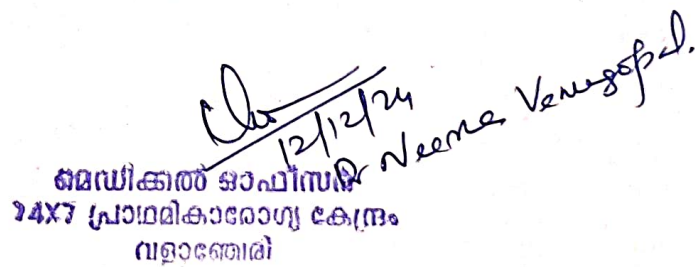 12/12/24
Dr Neema Venugopal.
മെഡിക്കൽ ഓഫീസർ
24X7 പ്രാഥമികാരോഗ്യ കേന്ദ്രം
വളാഞ്ചേരി